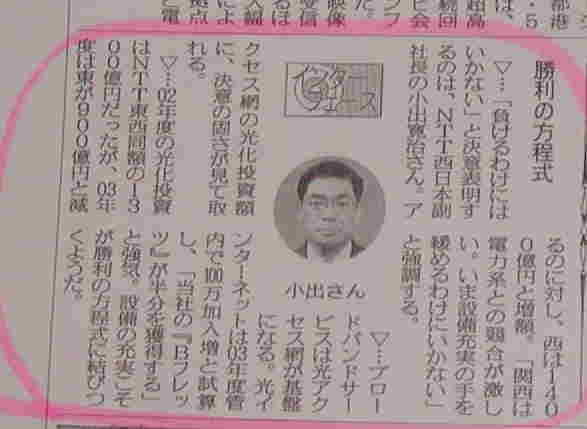 勝利の方程式
インターフェース
▽…「負けるわけには
いかない」と決意表明す
るのは、NTT西日本副
社長の小出寛治さん。ア
クセス網の光化投資額
に、決意の固さが見て取
れる。
▽…02年度の光化投資
はNTT東西同額の13
00億円だったが、03年
度は東が900億円と減
るのに対し、西は140
0億円と増額。「関西は
電力系との競合が激し
い。いま設備充実の手を
緩めるわけにいかない」
と強調する。
小出さん
▽…ブロー
ドバンドサー
ビスは光アク
セス網が基盤
になる。光イ
ンターネットは03年度管
内で100万加入増と試算
し、「当社の『Bフレッ
ツ』が半分を獲得する」
と強気。設備の充実こそ
が勝利の方程式に結びつ
くようだ。